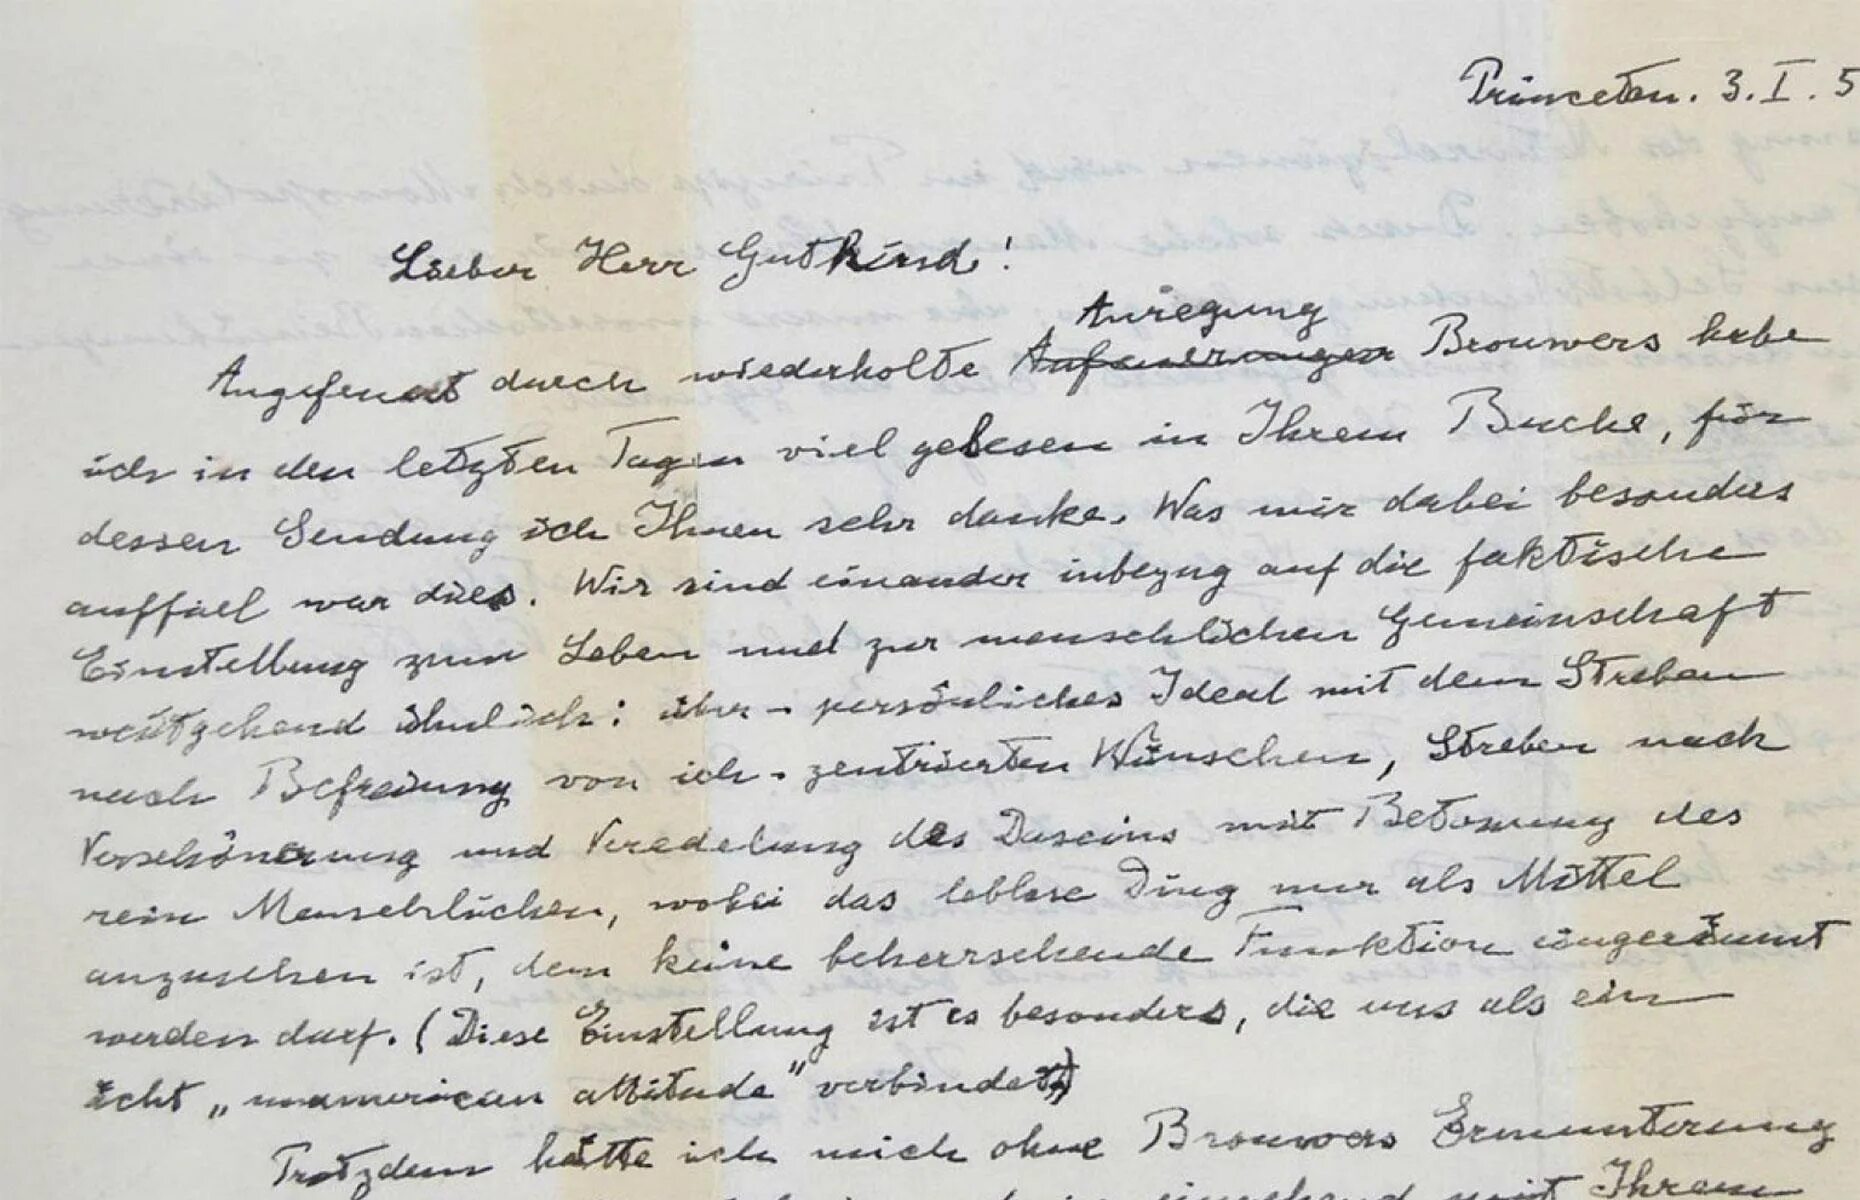 Princeton. 3. I. 5
Lieber Herr Gutkind!
Anregung
Angefeuert durch wiederholte Aufmunterungen Brouwers habe
ich in den letzten Tagen viel gelesen in Ihrem Buche, für
dessen Sendung ich Ihnen sehr danke. Was mir dabei besonders
auffiel war dies. Wir sind einander inbezug auf die faktische
Einstellung zum Leben und zur menschlichen Gemeinschaft
weitgehend ähnlich: über-persönliches Ideal mit dem Streben
nach Befreiung von ich-zentrierten Wünschen, Streben nach
Verschönerung und Veredelung des Daseins mit Betonung des
rein Menschlichen, wobei das leblose Ding nur als Mittel
anzusehen ist, dem keine beherrschende Funktion eingeräumt
werden darf. (Diese Einstellung ist es besonders, die uns als ein
echt „unamerican attitude" verbindet)
Trotzdem hätte ich mich ohne Brouwers Ermunterung
eingehend mit Ihrem